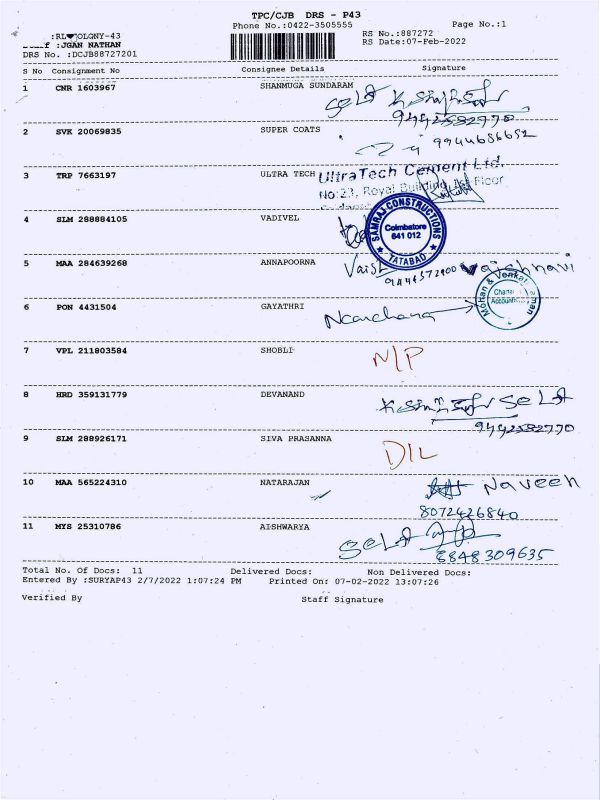 TPC/CJB DRS - P43
Phone No.:0422-3505555
Page No.:1
RS No.:887272
RS Date:07-Feb-2022
:JGAN NATHAN
DRS No. :DCJB88727201
S No Consignment No Consignee Details Signature
1 CNR 1603967 SHANMUGA SUNDARAM
9442582770
2 SVK 20069835 SUPER COATS
9944686652
3 TRP 7663197 ULTRA TECH UltraTech Cement Ltd.
No:23, Royal Building, Ist Floor
4 SLM 288884105 VADIVEL
SAMRAJ CONSTRUCTIONS
Coimbatore
641 012
TATABAD
5 MAA 284639268 ANNAPOORNA Vaishnavi
6 PON 4431504 GAYATHRI
Mohan & Venkataraman
Chartered
Accountants
7 VPL 211803584 SHOBLI N/P
8 HRD 359131779 DEVANAND
9442582770
9 SLM 288926171 SIVA PRASANNA D/L
10 MAA 565224310 NATARAJAN Naveen
8072426840
11 MYS 25310786 AISHWARYA
8848309635
Total No. Of Docs: 11 Delivered Docs: Non Delivered Docs:
Entered By :SURYAP43 2/7/2022 1:07:24 PM Printed On: 07-02-2022 13:07:26
Verified By Staff Signature